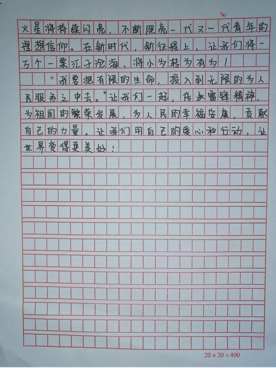 火星将持续闪亮，不断照亮一代又一代青年的
理想信仰。在新时代，新征程上，让我们将一
万个一汇江之沧海，将小为转为有为！
“我要把有限的生命，投入到无限的为人
民服务之中去。”让我们一起，传承雷锋精神，
为祖国的繁荣发展，为人民的幸福安康，贡献
自己的力量。让我们用自己的爱心和行动，让
世界变得更美好！
20×20=400